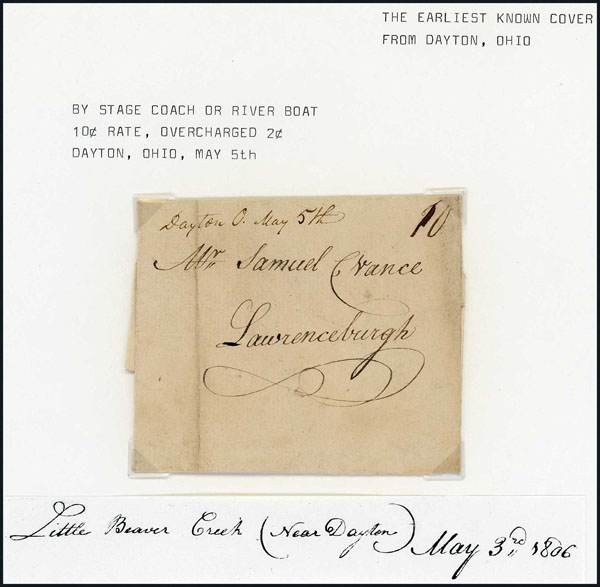 THE EARLIEST KNOWN COVER
FROM DAYTON, OHIO
BY STAGE COACH OR RIVER BOAT
10¢ RATE, OVERCHARGED 2¢
DAYTON, OHIO, MAY 5th
Dayton O. May 5th
10
Mr. Samuel C Vance
Lawrenceburgh
Little Beaver Creek (Near Dayton) May 3rd 1806